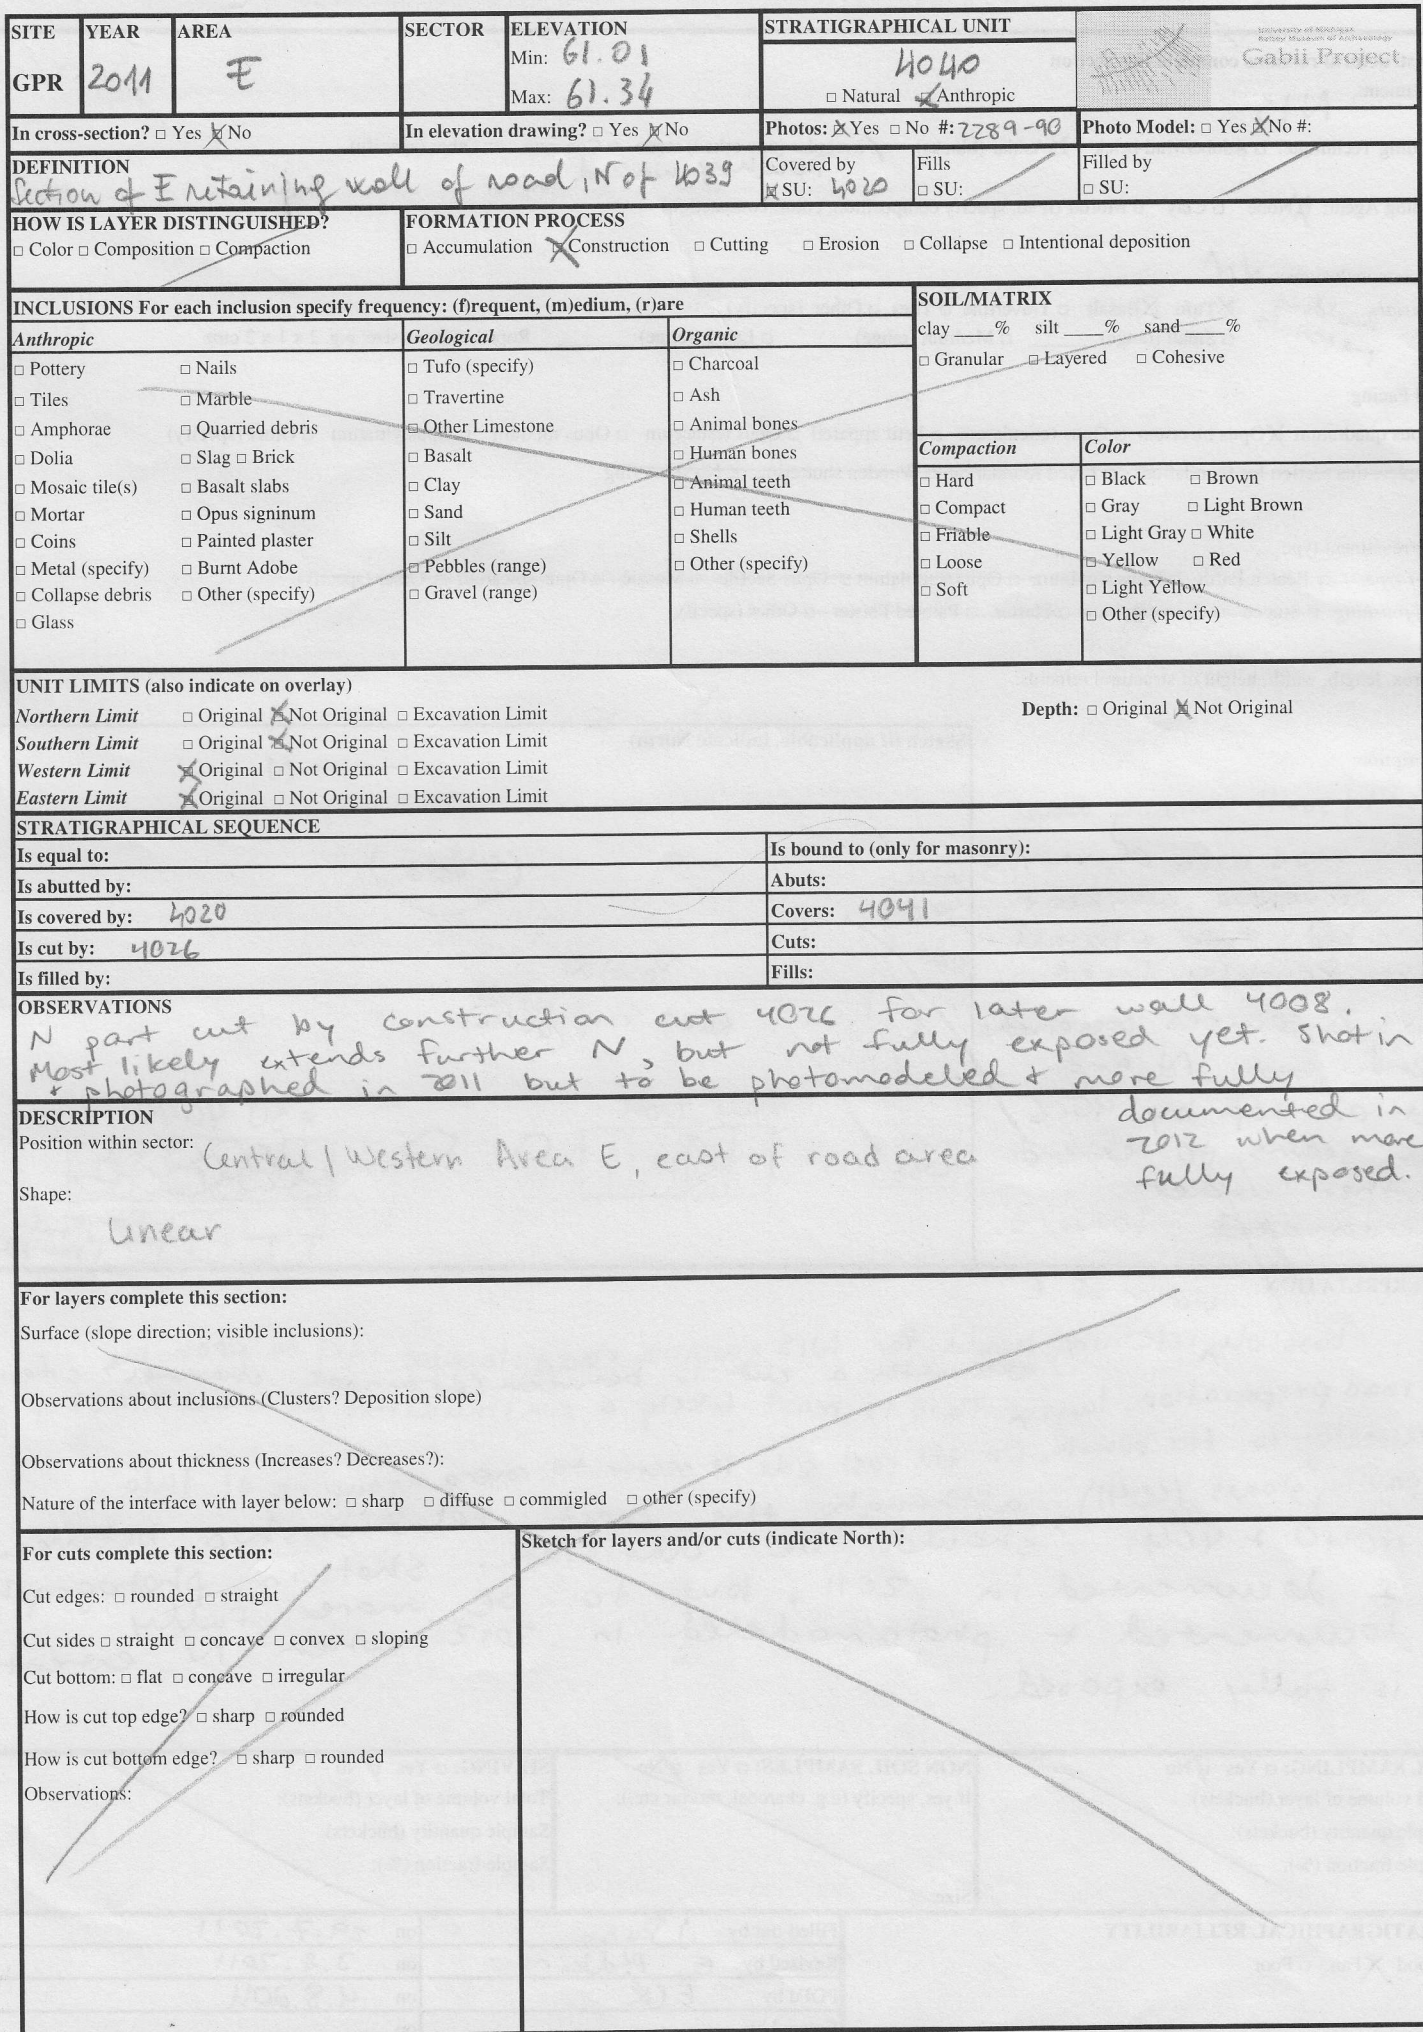 SITE YEAR AREA SECTOR ELEVATION STRATIGRAPHICAL UNIT
GPR 2011 E Min: 61.01 4040
Max: 61.34 □ Natural ☒ Anthropic
University of Michigan
Kelsey Museum of Archaeology
Gabii Project
In cross-section? □ Yes ☒ No In elevation drawing? □ Yes ☒ No Photos: ☒ Yes □ No #: 2289-90 Photo Model: □ Yes ☒ No #:
DEFINITION Covered by Fills Filled by
Section of E retaining wall of road, N of 4039 ☒ SU: 4020 □ SU: □ SU:
HOW IS LAYER DISTINGUISHED? FORMATION PROCESS
□ Color □ Composition □ Compaction □ Accumulation ☒ Construction □ Cutting □ Erosion □ Collapse □ Intentional deposition
INCLUSIONS For each inclusion specify frequency: (f)requent, (m)edium, (r)are
Anthropic
□ Pottery □ Nails
□ Tiles □ Marble
□ Amphorae □ Quarried debris
□ Dolia □ Slag □ Brick
□ Mosaic tile(s) □ Basalt slabs
□ Mortar □ Opus signinum
□ Coins □ Painted plaster
□ Metal (specify) □ Burnt Adobe
□ Collapse debris □ Other (specify)
□ Glass
Geological
□ Tufo (specify)
□ Travertine
□ Other Limestone
□ Basalt
□ Clay
□ Sand
□ Silt
□ Pebbles (range)
□ Gravel (range)
Organic
□ Charcoal
□ Ash
□ Animal bones
□ Human bones
□ Animal teeth
□ Human teeth
□ Shells
□ Other (specify)
SOIL/MATRIX
clay ____% silt ____% sand ____%
□ Granular □ Layered □ Cohesive
Compaction
□ Hard
□ Compact
□ Friable
□ Loose
□ Soft
Color
□ Black □ Brown
□ Gray □ Light Brown
□ Light Gray □ White
□ Yellow □ Red
□ Light Yellow
□ Other (specify)
UNIT LIMITS (also indicate on overlay)
Northern Limit □ Original ☒ Not Original □ Excavation Limit Depth: □ Original ☒ Not Original
Southern Limit □ Original ☒ Not Original □ Excavation Limit
Western Limit ☒ Original □ Not Original □ Excavation Limit
Eastern Limit ☒ Original □ Not Original □ Excavation Limit
STRATIGRAPHICAL SEQUENCE
Is equal to: Is bound to (only for masonry):
Is abutted by: Abuts:
Is covered by: 4020 Covers: 4041
Is cut by: 4026 Cuts:
Is filled by: Fills:
OBSERVATIONS
N part cut by construction cut 4026 for later wall 4008.
Most likely extends further N, but not fully exposed yet. Shot in
+ photographed in 2011 but to be photomodeled + more fully
documented in
2012 when more
fully exposed.
DESCRIPTION
Position within sector: Central/Western Area E, east of road area
Shape:
Linear
For layers complete this section:
Surface (slope direction; visible inclusions):
Observations about inclusions (Clusters? Deposition slope)
Observations about thickness (Increases? Decreases?):
Nature of the interface with layer below: □ sharp □ diffuse □ commigled □ other (specify)
For cuts complete this section:
Cut edges: □ rounded □ straight
Cut sides □ straight □ concave □ convex □ sloping
Cut bottom: □ flat □ concave □ irregular
How is cut top edge? □ sharp □ rounded
How is cut bottom edge? □ sharp □ rounded
Observations:
Sketch for layers and/or cuts (indicate North):